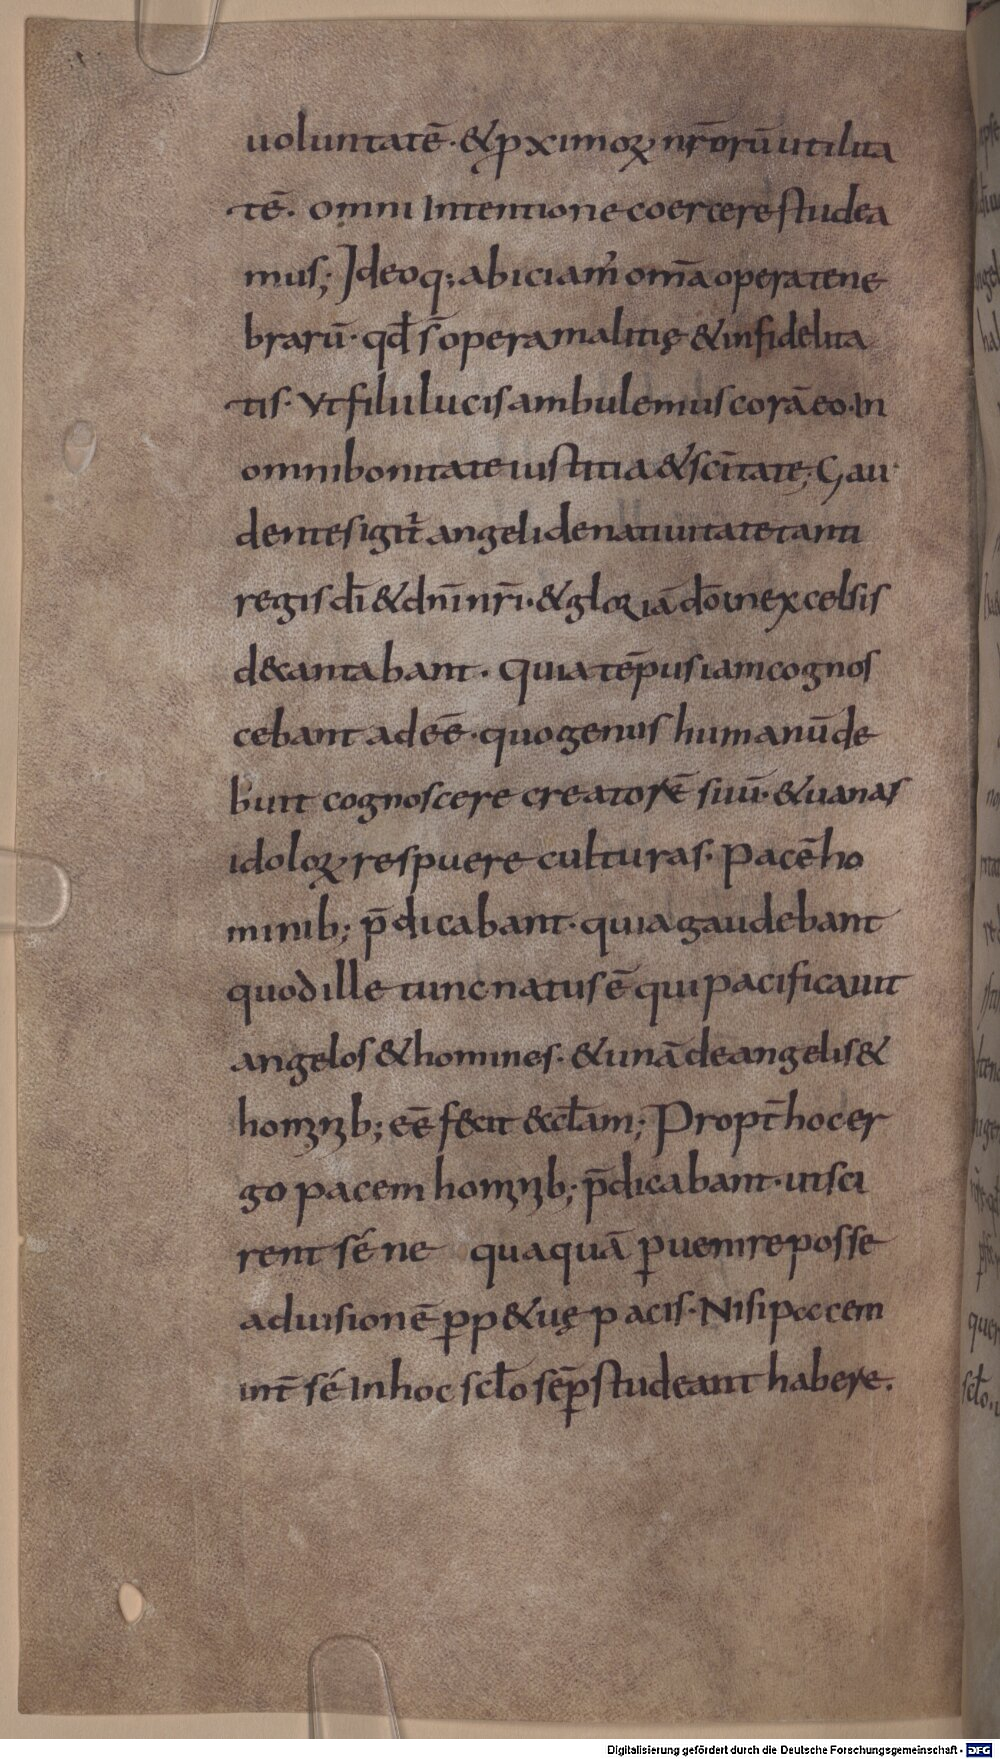 uoluntatē· & pximoꝝ nr̄orū utilita
tē· omni Intentione coercere studea
mus; Ideoq; abiciam̄ om̄a opera tene
brarū· qd̄ s̄ opera malitię & infidelita
tis· Vt filii lucis ambulemus corā eo· in
omni bonitate iustitia & sc̄itate; Gau
dentes igit̄ angeli de natiuitate tanti
regis dī & dn̄i nr̄i· & gloriā dō in excelsis
decantabant· Quia tēpus iam cognos
cebant adeē· quo genus humanū de
buit cognoscere creatorē suū· & uanas
idoloꝝ respuere culturas· Pacē ho
minib; p̄dicabant· quia gaudebant
quod ille tunc natus ē qui pacificauit
angelos & homines· & unā de angelis &
hominib; eē fecit eccl̄am; Propt̄ hoc er
go pacem hominib; p̄dicabant· ut sci
rent sé ne quaquā ꝑuenire posse
ad uisionē ꝑp&uę pacis· Nisi paccem
int̄ sé In hoc scl̄o sēp studeant habere.
Digitalisierung gefördert durch die Deutsche Forschungsgemeinschaft - DFG